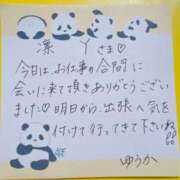 凛 Yさま♡
今日は、お仕事の合間に
会いに来て頂きありがとうござい
ました!!明日から、出張へ気を
付けて行ってきて下さいね!!
ゆうか